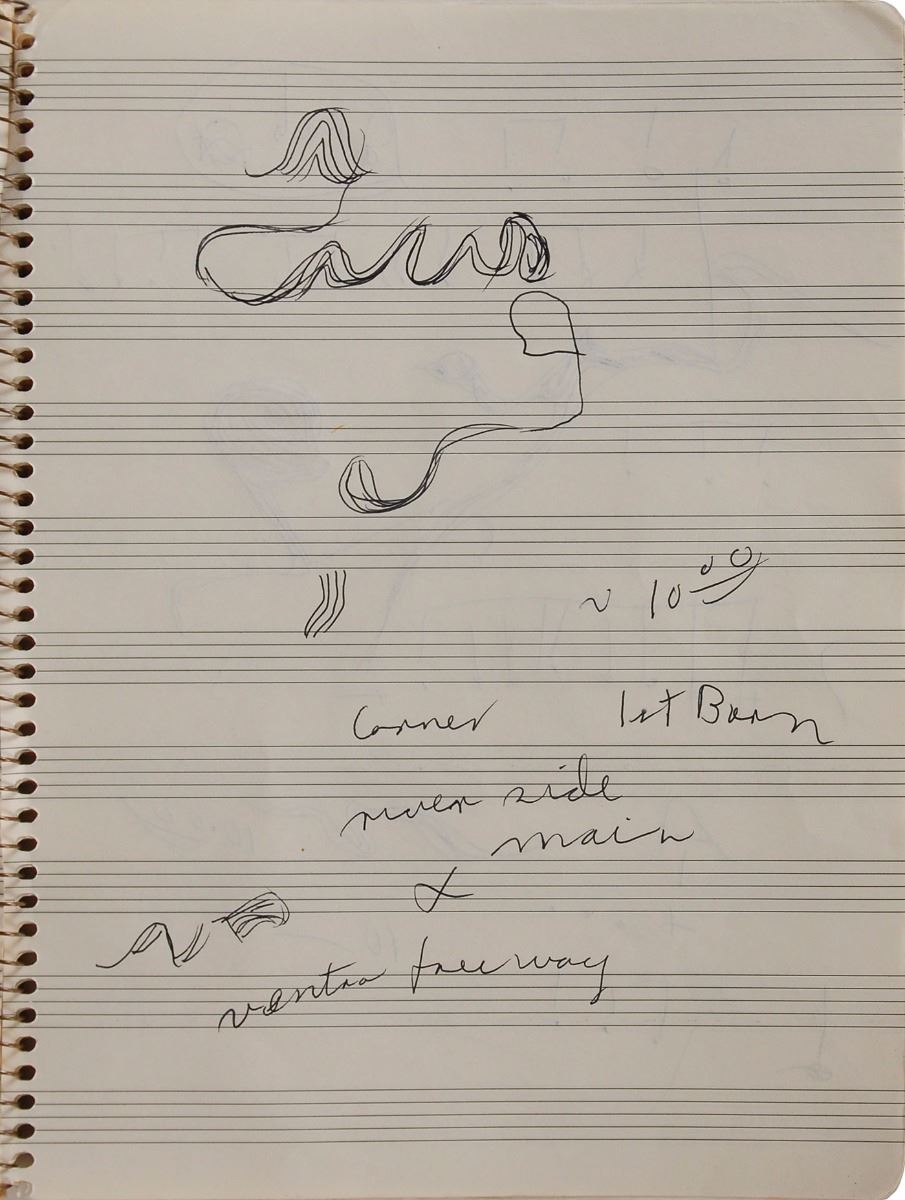 ~ 10 00
Corner 1st Barn
river side
main
&
ventra freeway